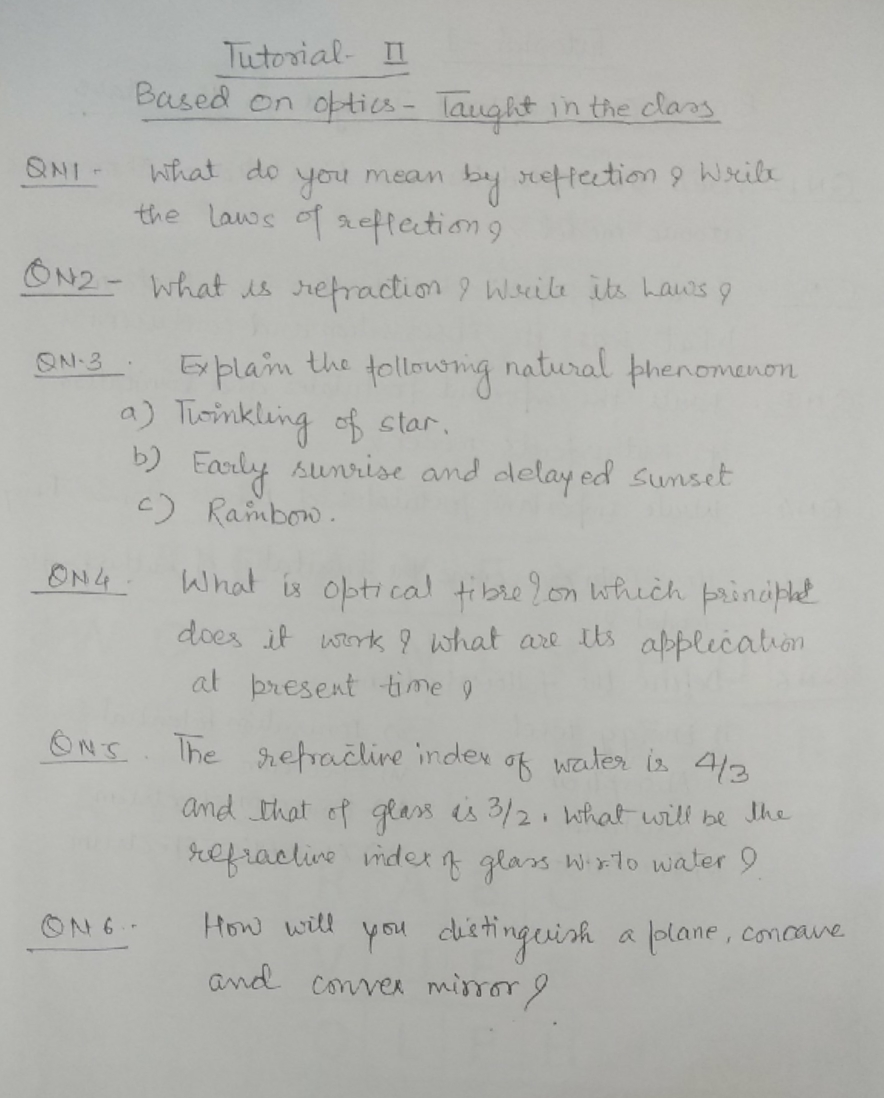 Tutorial - II
Based on optics - Taught in the class
QN1 - What do you mean by reflection ? Write
the laws of reflection ?
QN2 - What is refraction ? Write its Laws ?
QN.3 . Explain the following natural phenomenon
a) Twinkling of star.
b) Early sunrise and delayed sunset
c) Rainbow.
QN4 . What is optical fibre ? on which principle
does it work ? what are its application
at present time ?
QN5 . The refractive index of water is 4/3
and that of glass is 3/2 . What will be the
refractive index of glass w.r.to water ?
QN6 .- How will you distinguish a plane, concave
and convex mirror ?